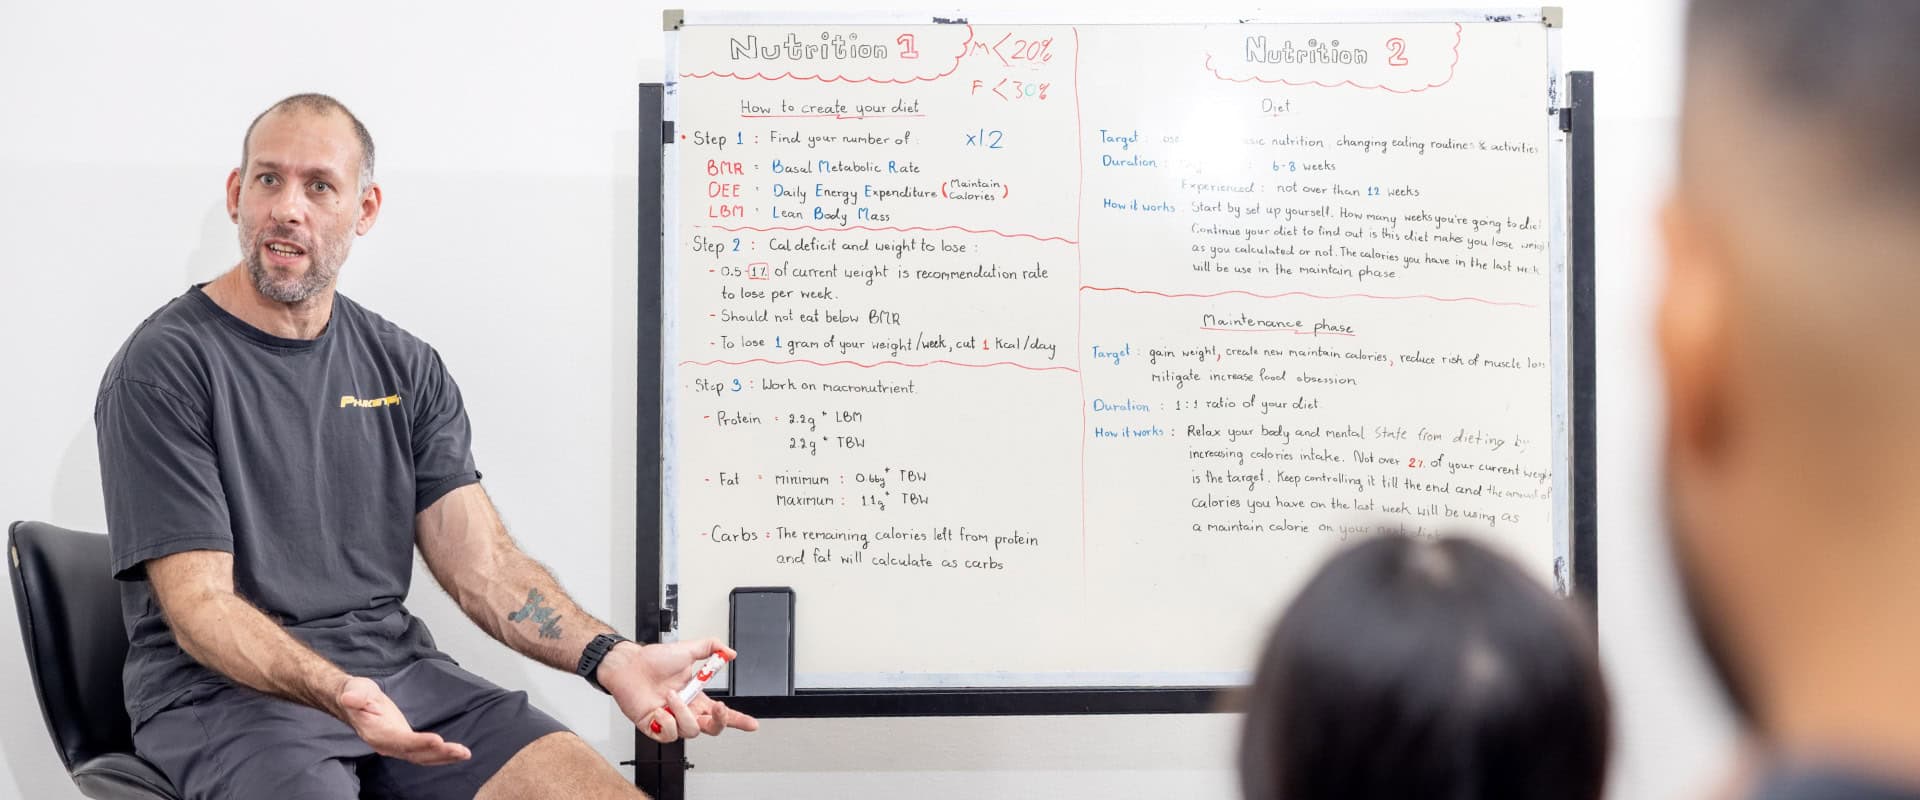 Nutrition 1
M < 20%
F < 30%
How to create your diet
Step 1 : Find your number of :
x1.2
BMR = Basal Metabolic Rate
DEE : Daily Energy Expenditure (Maintain Calories)
LBM : Lean Body Mass
Step 2 : Cal deficit and weight to lose :
- 0.5-1% of current weight is recommendation rate
to lose per week.
- Should not eat below BMR
- To lose 1 gram of your weight/week, cut 1 Kcal/day
Step 3 : Work on macronutrient.
- Protein = 2.2g * LBM
2.2g * TBW
- Fat = minimum : 0.66g * TBW
maximum : 1.1g * TBW
- Carbs = The remaining calories left from protein
and fat will calculate as carbs
Nutrition 2
Diet
Target : nutrition, changing eating routines & activities
Duration : 6-8 weeks
Experienced : not over than 12 weeks
How it works : Start by set up yourself. How many weeks you're going to diet
Continue your diet to find out is this diet makes you lose weight
as you calculated or not. The calories you have in the last week
will be use in the maintain phase
Maintenance phase
Target : gain weight, create new maintain calories, reduce risk of muscle loss
mitigate increase food obsession
Duration : 1:1 ratio of your diet.
How it works : Relax your body and mental state from dieting by
increasing calories intake. Not over 2% of your current weight
is the target. Keep controlling it till the end and the amount of
calories you have on the last week will be using as
a maintain calorie on your next diet